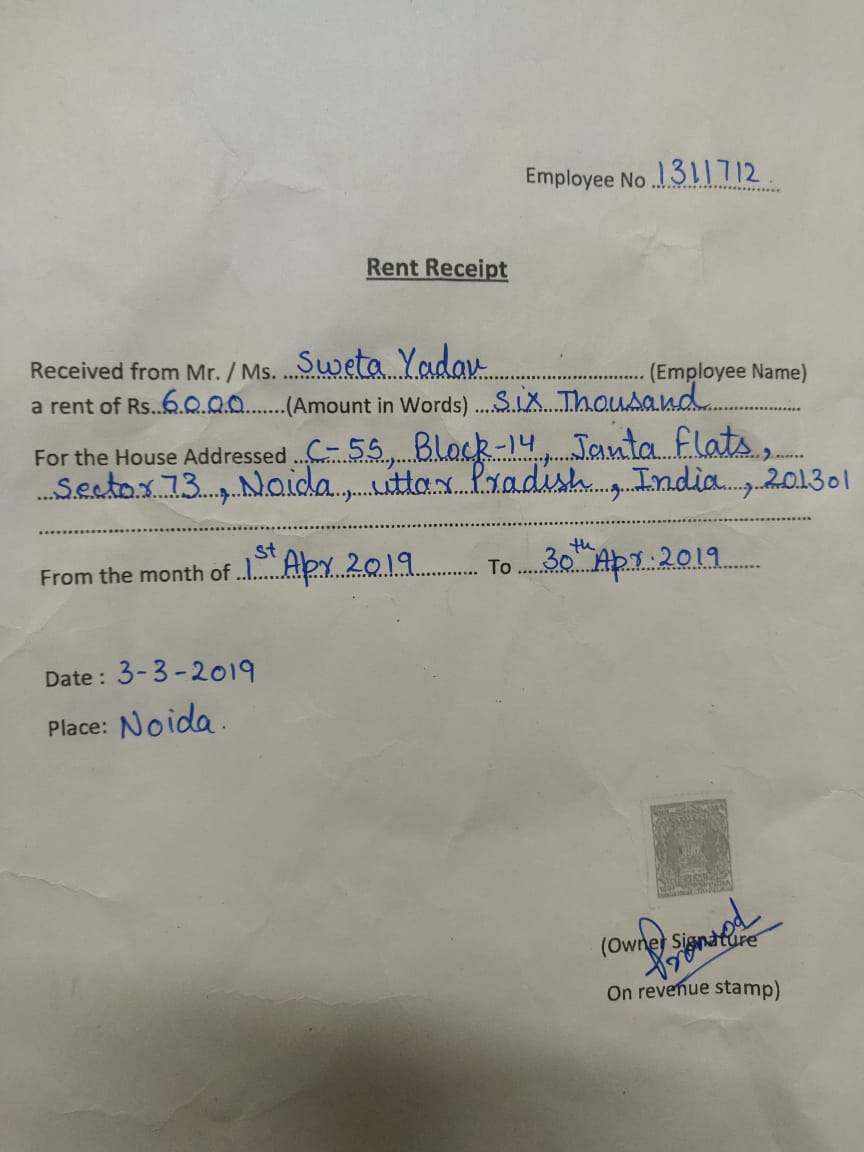 Employee No 1311712.
Rent Receipt
Received from Mr. / Ms. Sweta Yadav (Employee Name)
a rent of Rs. 6000 (Amount in Words) Six Thousand
For the House Addressed C-55, Block-14, Janta Flats,
Sector 73, Noida, uttar Pradish, India, 201301
From the month of 1st Apr 2019 To 30th Apr. 2019
Date : 3-3-2019
Place: Noida.
(Owner Signature
Pramod
On revenue stamp)